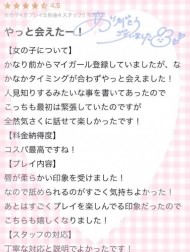 4.5
やっと会えたー！
ありがとう
ございました
【女の子について】
かなり前からマイガール登録していましたが、な
かなかタイミングが合わずやっと会えました！
人見知りするみたいな事を書いてあったので
こっちも最初は緊張していたのですが
全然気さくに話せて楽しかったです！
【料金納得度】
コスパ最高ですね！
【プレイ内容】
唇が柔らかい印象を受けました！
なので舐められるのがすごく気持ちよかった！
あとはすごくプレイを楽しんでる印象だったので
こちらも嬉しくなりました！
【スタッフの対応】
丁寧な対応と説明でよかったです！